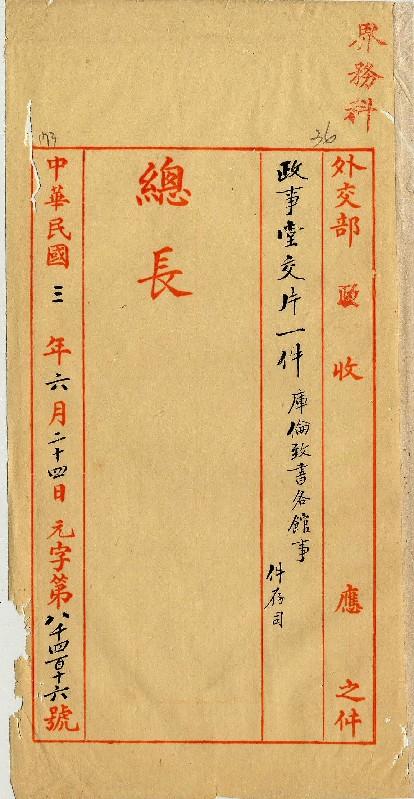 界務科
36
外交部 收 應 之件
政事堂交片一件 庫倫致書各館事
件存司
總長
中華民國三年六月二十四日元字第八千四百十六號